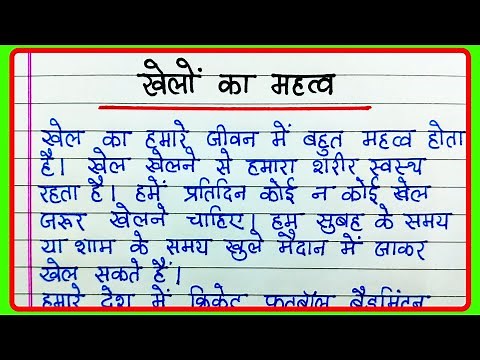 खेलों का महत्व
खेल का हमारे जीवन में बहुत महत्व होता
है। खेल खेलने से हमारा शरीर स्वस्थ
रहता है। हमें प्रतिदिन कोई न कोई खेल
जरूर खेलने चाहिए। हम सुबह के समय
या शाम के समय खुले मैदान में जाकर
खेल सकते हैं।
हमारे देश में क्रिकेट फुटबॉल बैडमिंटन